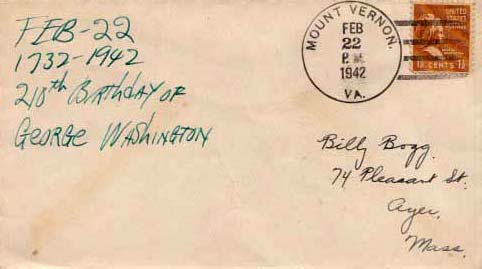 FEB-22
1732-1942
210th BIRTHDAY OF
GEORGE WASHINGTON
MOUNT VERNON.
FEB
22
P.M.
1942
VA.
UNITED
STATES
1½ CENTS 1½
Billy Bogg.
74 Pleasant St.
Ayer,
Mass.